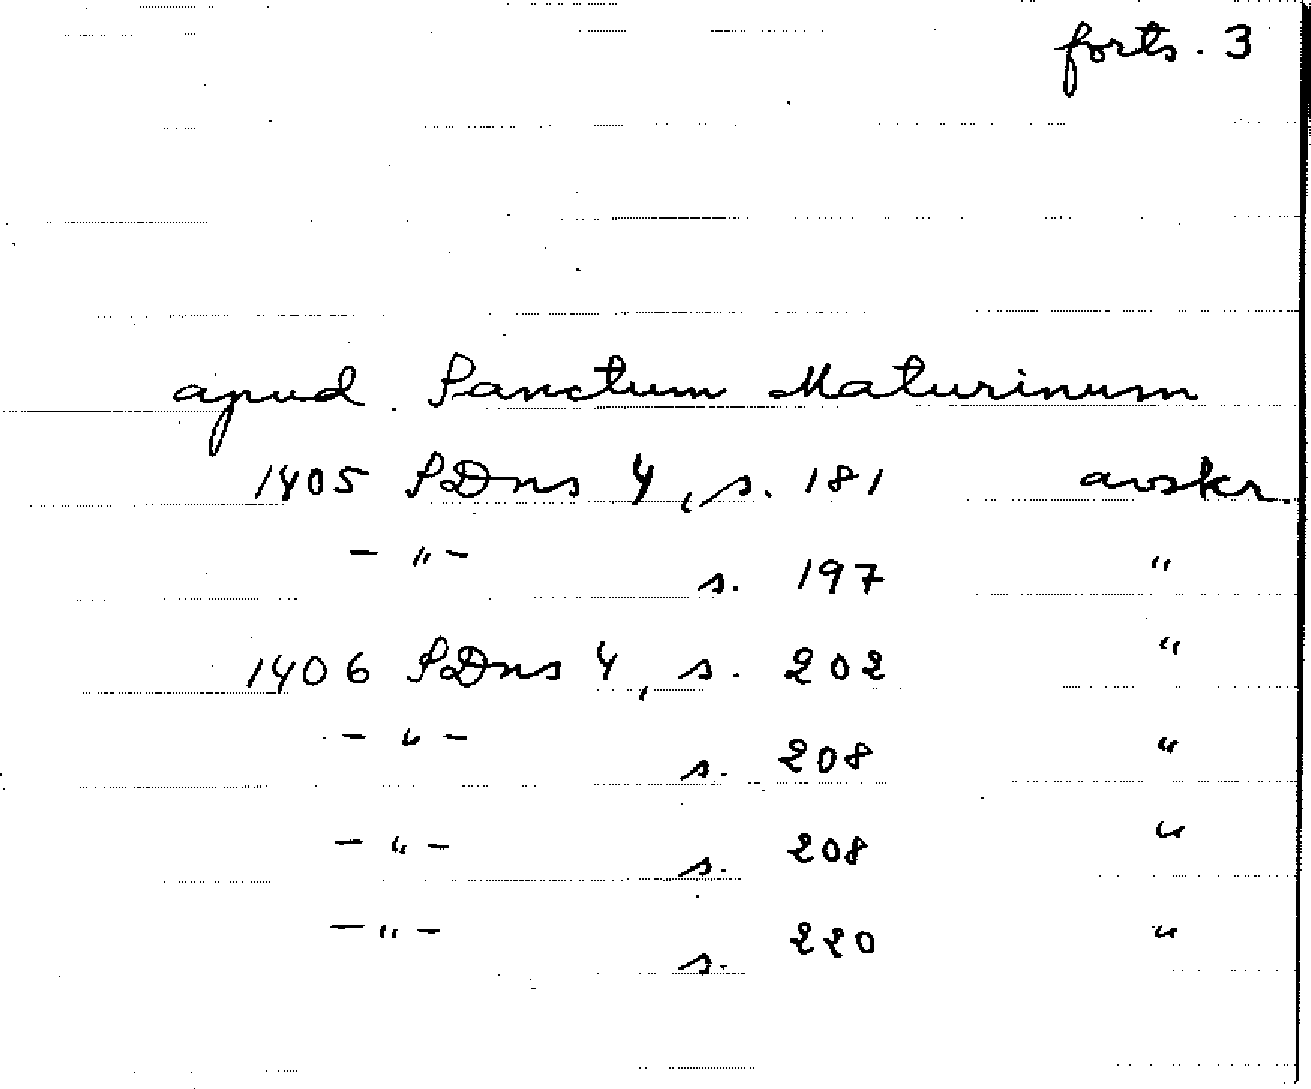 forts. 3
apud Sanctum Maturinum
1405 SDns 4, s. 181 avskr.
- " - s. 197 "
1406 SDns 4, s. 202 "
- " - s. 208 "
- " - s. 208 "
- " - s. 220 "